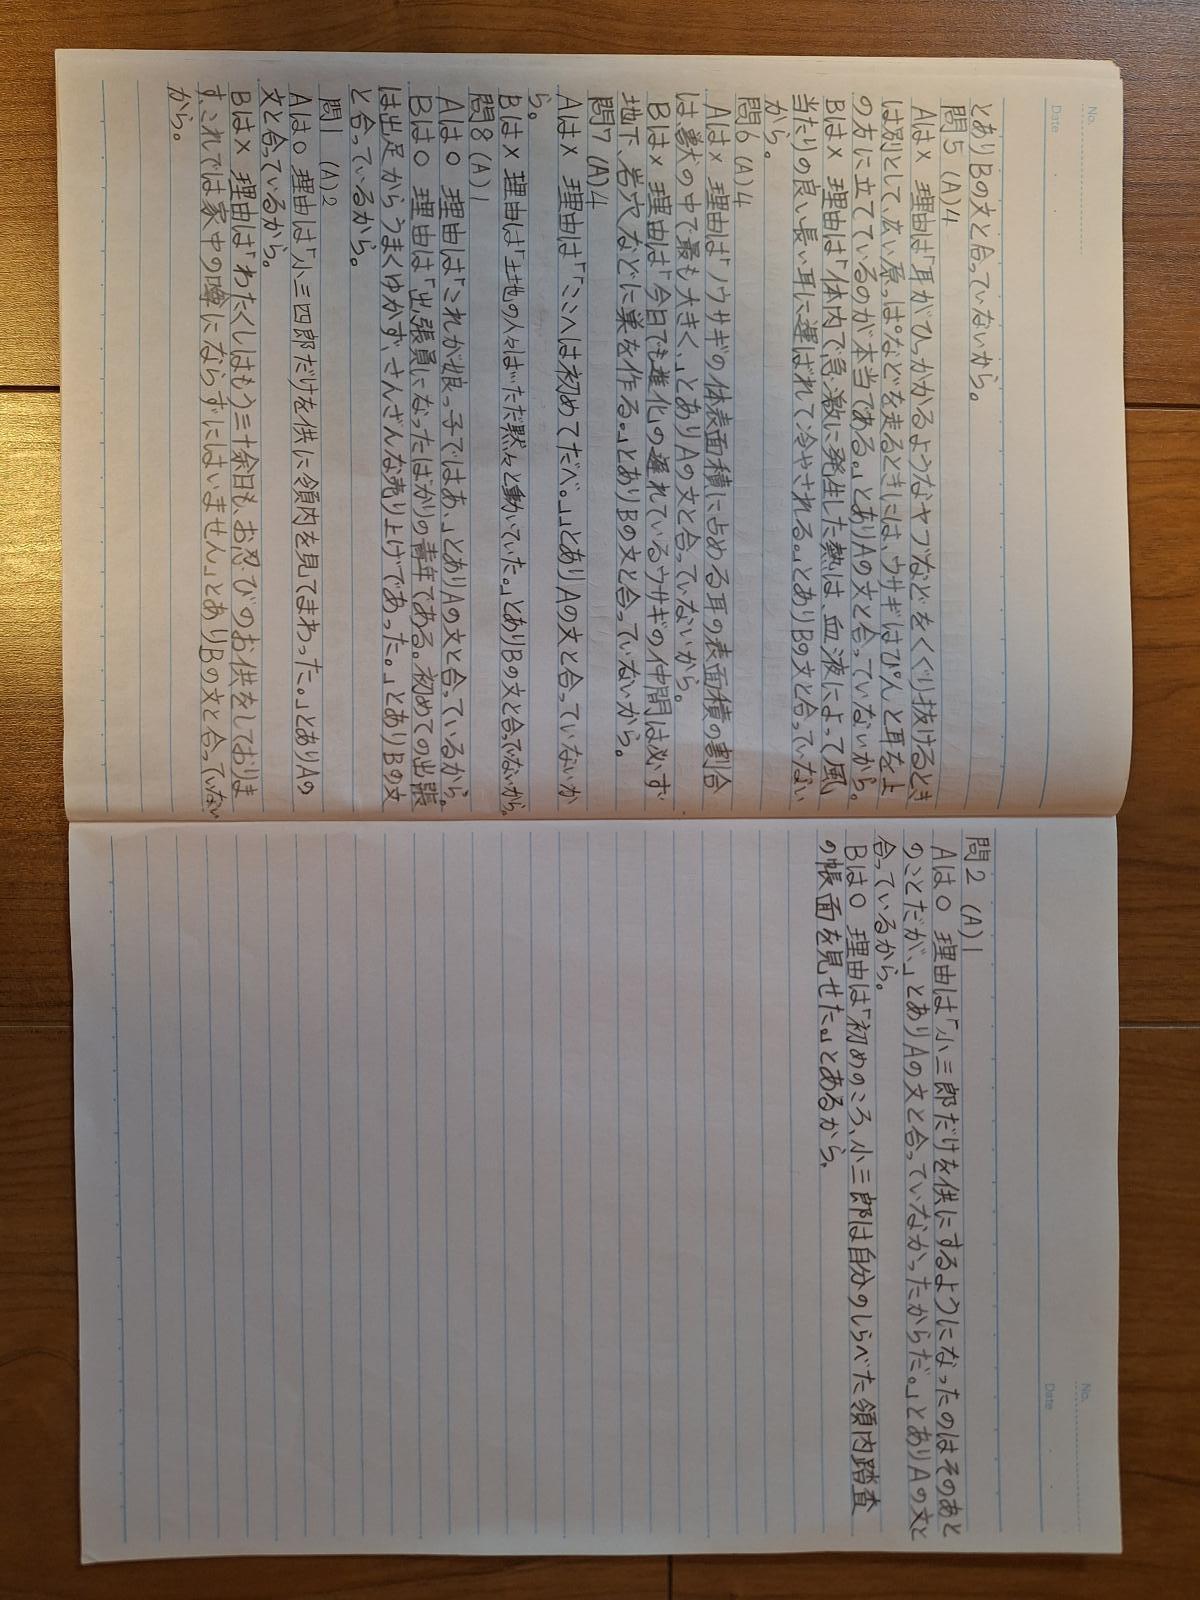 No.
Date
とありBの文と合っていないから。
問5 (A)4
Aは× 理由は「耳がひっかかるようなヤブなどをくぐり抜けるとき
は別として、広い原っぱなどを走るときには、ウサギはぴんと耳を上
の方に立てているのが本当である。」とありAの文と合っていないから。
Bは× 理由は「体内で急激に発生した熱は、血液によって風
当たりの良い長い耳に運ばれて冷やされる。」とありBの文と合っていない
から。
問6 (A)4
Aは× 理由は「ノウサギの体表面積に占める耳の表面積の割合
は獣の中で最も大きく、」とありAの文と合っていないから。
Bは× 理由は「今日でも進化の遅れているウサギの仲間は必ず
地下、岩穴などに巣を作る。」とありBの文と合っていないから。
問7 (A)4
Aは× 理由は「「ここへは初めてだべ。」」とありAの文と合っていないか
ら。
Bは× 理由は「土地の人々はただ黙々と動いていた。」とありBの文と合っていないから。
問8 (A)1
Aは○ 理由は「これが娘っ子ではあ、」とありAの文と合っているから。
Bは○ 理由は「出張員になったばかりの青年である。初めての出張
は出足からうまくゆかず、さんざんな売り上げであった。」とありBの文
と合っているから。
問1 (A)2
Aは○ 理由は「小三四郎だけを供に領内を見てまわった。」とありAの
文と合っているから。
Bは× 理由は「わたくしはもう三十余日も、お忍びのお供をしておりま
す、これでは家中の噂にならずにはいません」とありBの文と合っていない
から。
No.
Date
問2 (A)1
Aは○ 理由は「小三郎だけを供にするようになったのはそのあと
のことだが、」とありAの文と合っていなかったからだ。」とありAの文と
合っているから。
Bは○ 理由は「初めのころ、小三郎は自分のしらべた領内踏査
の帳面を見せた。」とあるから。